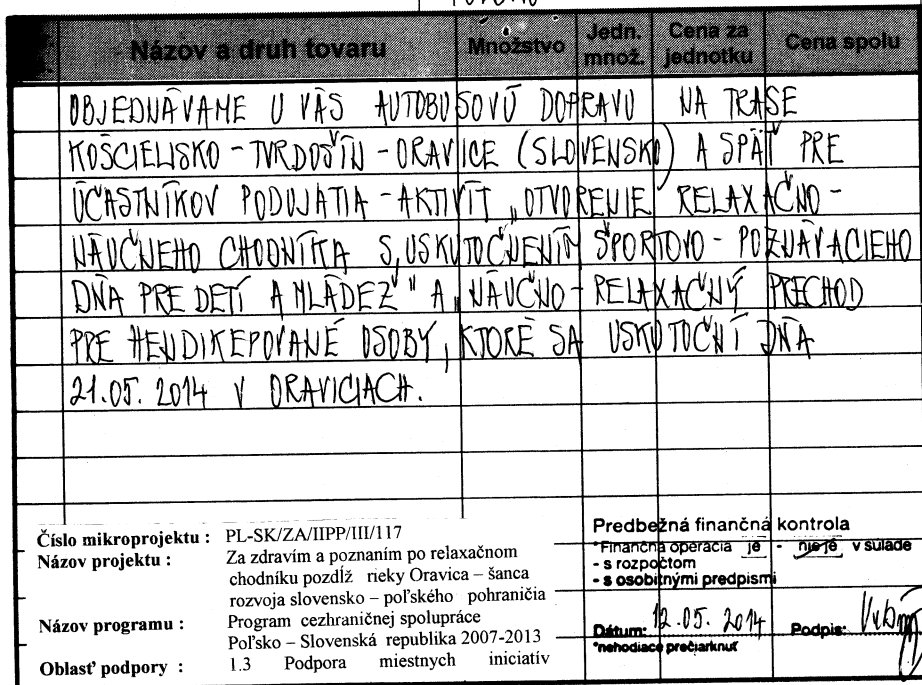 Názov a druh tovaru Množstvo Jedn. množ. Cena za jednotku Cena spolu
OBJEDNÁVAME U VÁS AUTOBUSOVÚ DOPRAVU NA TRASE
KOŠCIELISKO - TVRDOŠÍN - ORAVICE (SLOVENSKO) A SPÄŤ PRE
ÚČASTNÍKOV PODUJATIA - AKTIVÍT „OTVORENIE RELAXAČNO -
NÁUČNEHO CHODNÍKA S USKUTOČNENÍM ŠPORTOVO - POZNÁVACIEHO
DŇA PRE DETÍ A MLÁDEŽ" A „NÁUČNO - RELAXAČNÝ PRECHOD
PRE HENDIKEPOVANÉ OSOBY, KTORÉ SA USKUTOČNÍ DŇA
21.05. 2014 V ORAVICIACH.
Číslo mikroprojektu : PL-SK/ZA/IIPP/III/117
Názov projektu : Za zdravím a poznaním po relaxačnom
chodníku pozdĺž rieky Oravica – šanca
rozvoja slovensko – poľského pohraničia
Názov programu : Program cezhraničnej spolupráce
Poľsko – Slovenská republika 2007-2013
Oblasť podpory : 1.3 Podpora miestnych iniciatív
Predbežná finančná kontrola
*Finančná operácia je - nie je v súlade
- s rozpočtom
- s osobitnými predpismi
Dátum: 12.05. 2014 Podpis:
*nehodiace prečiarknuť